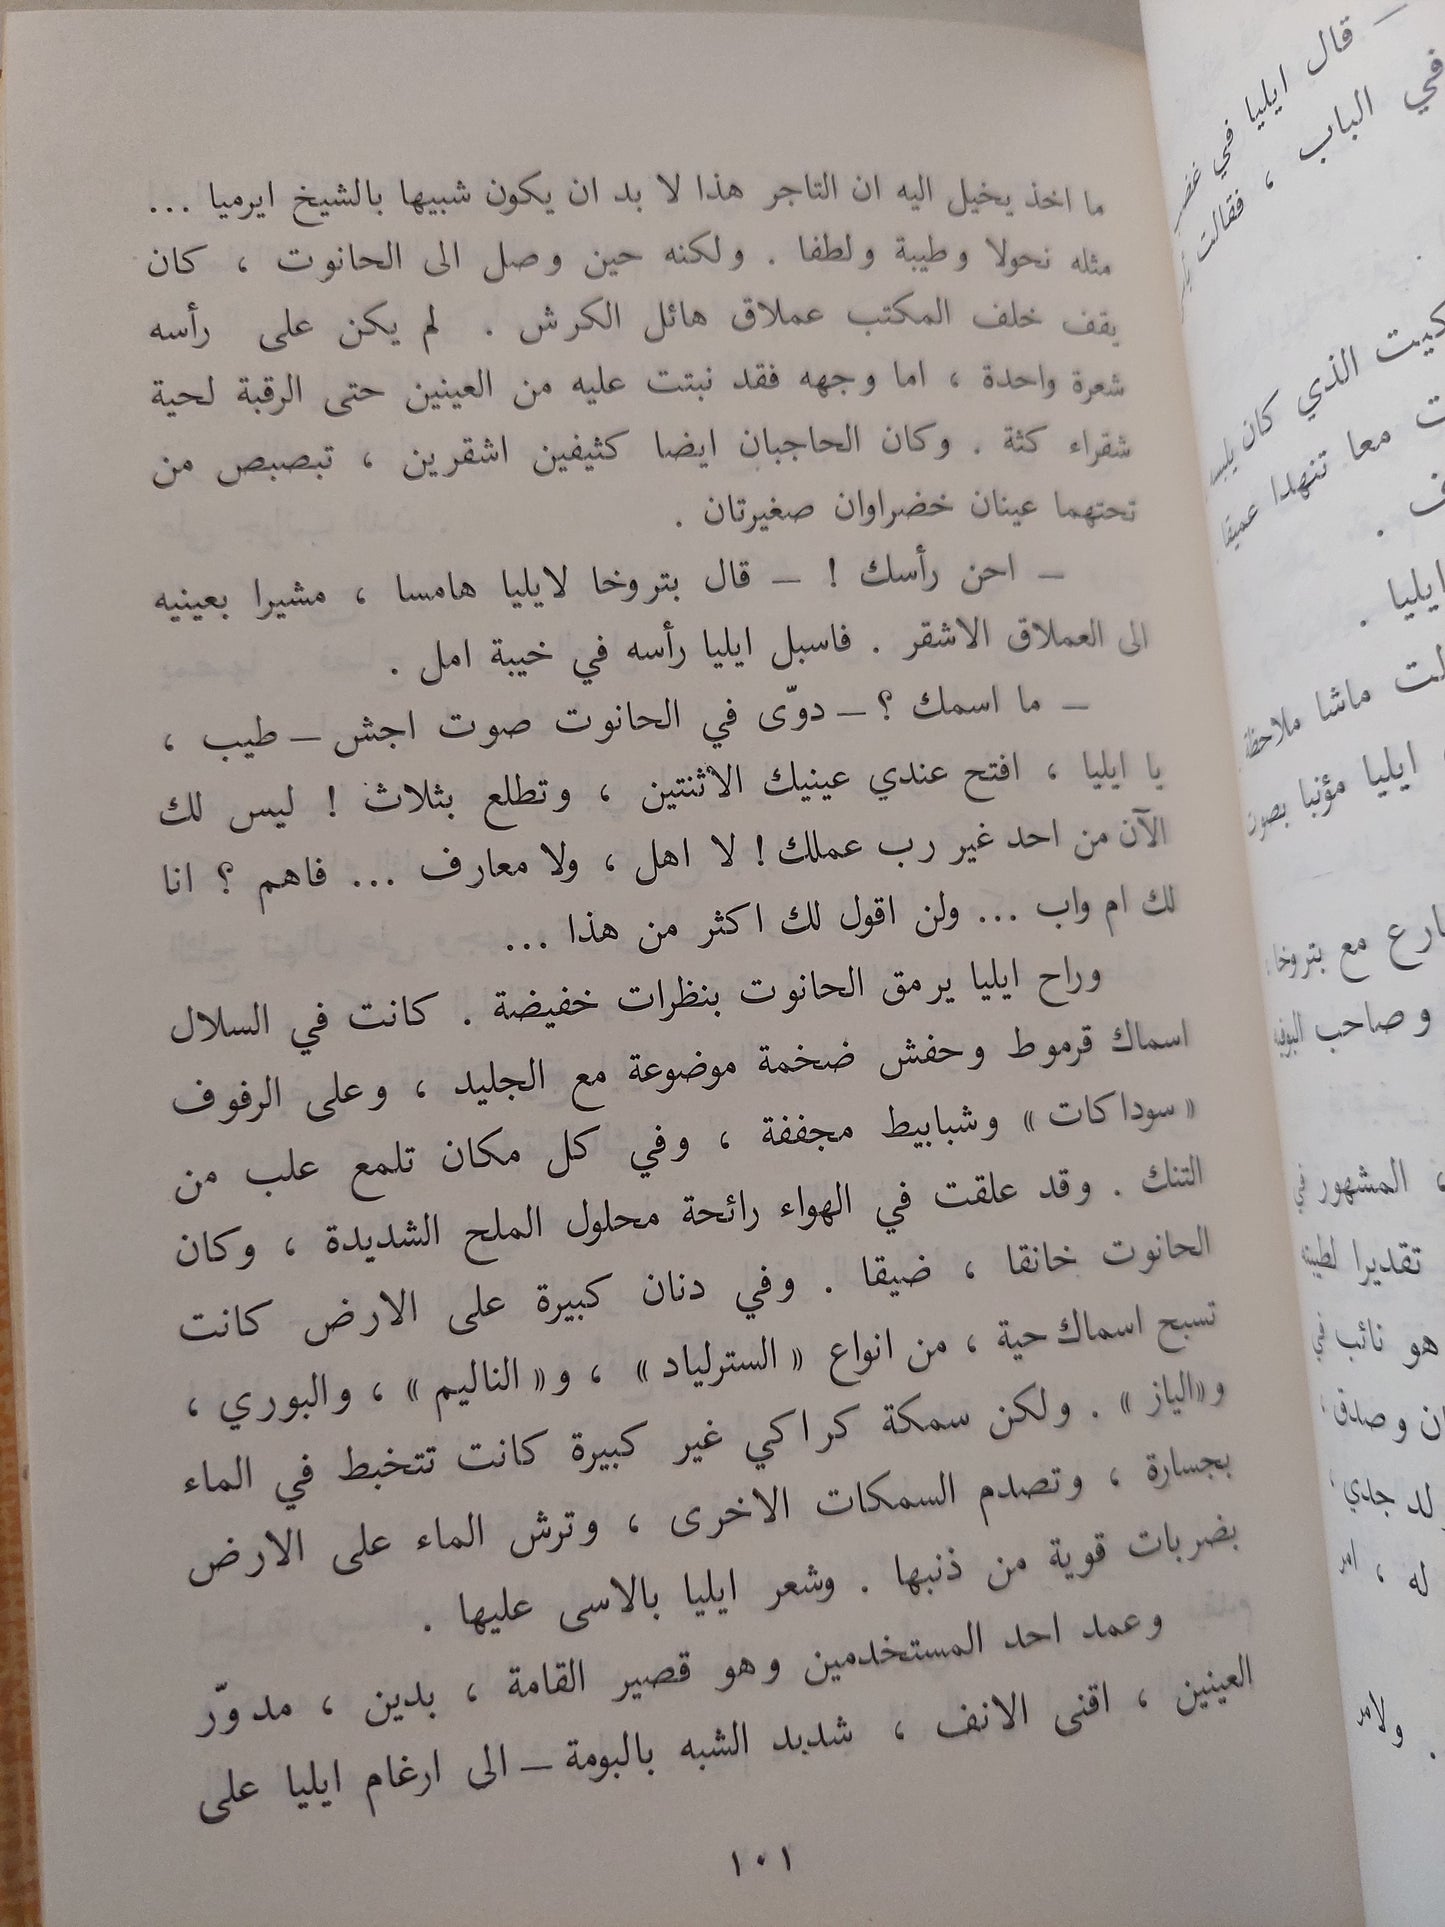 ما اخذ يخيل اليه ان التاجر هذا لا بد ان يكون شبيها بالشيخ ايرميا ...
مثله نحولا وطيبة ولطفا . ولكنه حين وصل الى الحانوت ، كان
يقف خلف المكتب عملاق هائل الكرش . لم يكن على رأسه
شعرة واحدة ، اما وجهه فقد نبتت عليه من العينين حتى الرقبة لحية
شقراء كثة . وكان الحاجبان ايضا كثيفين اشقرين ، تبصبص من
تحتهما عينان خضراوان صغيرتان .
– احن رأسك ! – قال بتروخا لايليا هامسا ، مشيرا بعينيه
الى العملاق الاشقر . فاسبل ايليا رأسه في خيبة امل .
– ما اسمك ؟ – دوّى في الحانوت صوت اجش – طيب ،
يا ايليا ، افتح عندي عينيك الاثنتين ، وتطلع بثلاث ! ليس لك
الآن من احد غير رب عملك ! لا اهل ، ولا معارف ... فاهم ؟ انا
لك ام واب ... ولن اقول لك اكثر من هذا ...
وراح ايليا يرمق الحانوت بنظرات خفيضة . كانت في السلال
اسماك قرموط وحفش ضخمة موضوعة مع الجليد ، وعلى الرفوف
« سوداكات » وشبابيط مجففة ، وفي كل مكان تلمع علب من
التنك . وقد علقت في الهواء رائحة محلول الملح الشديدة ، وكان
الحانوت خانقا ، ضيقا . وفي دنان كبيرة على الارض كانت
تسبح اسماك حية ، من انواع « السترلياد » ، و« الناليم » ، والبوري ،
و«الياز » . ولكن سمكة كراكي غير كبيرة كانت تتخبط في الماء
بجسارة ، وتصدم السمكات الاخرى ، وترش الماء على الارض
بضربات قوية من ذنبها . وشعر ايليا بالاسى عليها .
وعمد احد المستخدمين وهو قصير القامة ، بدين ، مدوّر
العينين ، اقنى الانف ، شديد الشبه بالبومة – الى ارغام ايليا على
١٠١
– قال ايليا في
في الباب ، فقالت
كيت الذي كان
معا تنهدا عميقا
ايليا .
ماشا ملاحظة
ايليا مؤنبا بصوت
مع بتروخا
وصاحب البوفيه
، المشهور في
تقديرا لطيبته
هو نائب في
وصدق ،
جدي ،
له ، امر
. ولامر